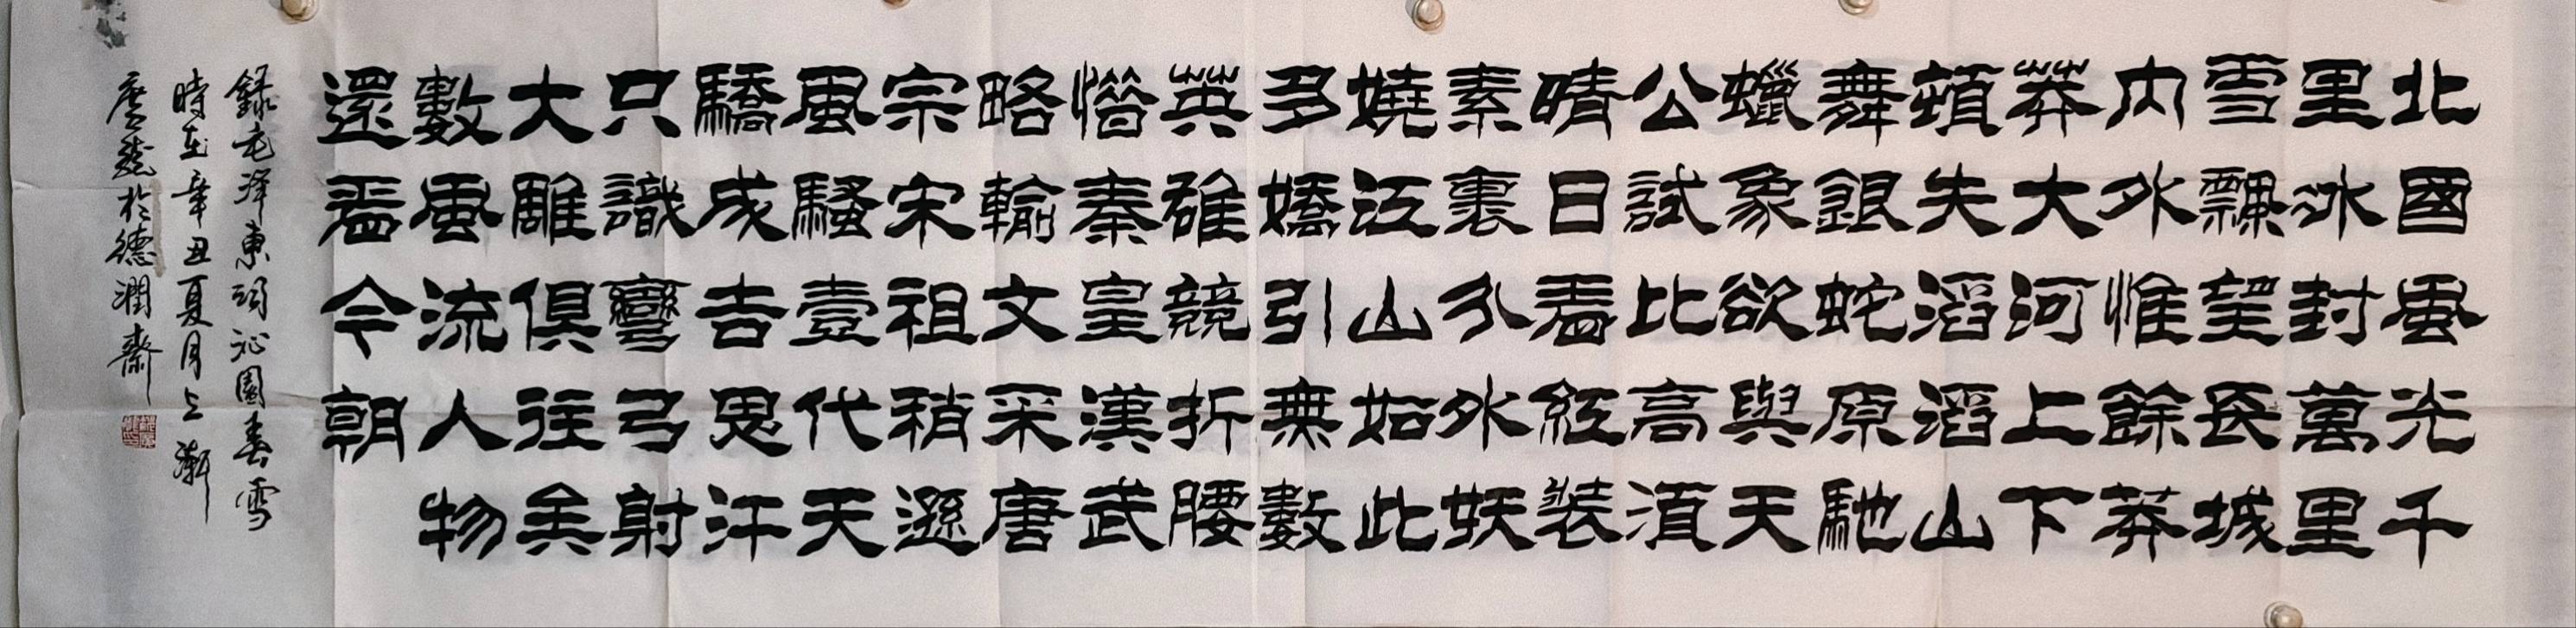 北國風光千
里冰封萬里
雪飄望長城
内外惟餘莽
莽大河上下
頓失滔滔山
舞銀蛇原馳
蠟象欲與天
公試比高須
晴日看紅裝
素裹分外妖
嬈江山如此
多嬌引無數
英雄競折腰
惜秦皇漢武
略輸文采唐
宗宋祖稍遜
風騷壹代天
驕成吉思汗
只識彎弓射
大雕俱往矣
數風流人物
還看今朝
錄毛澤東詞沁園春雪
時在辛丑夏月上澣
於德潤齋